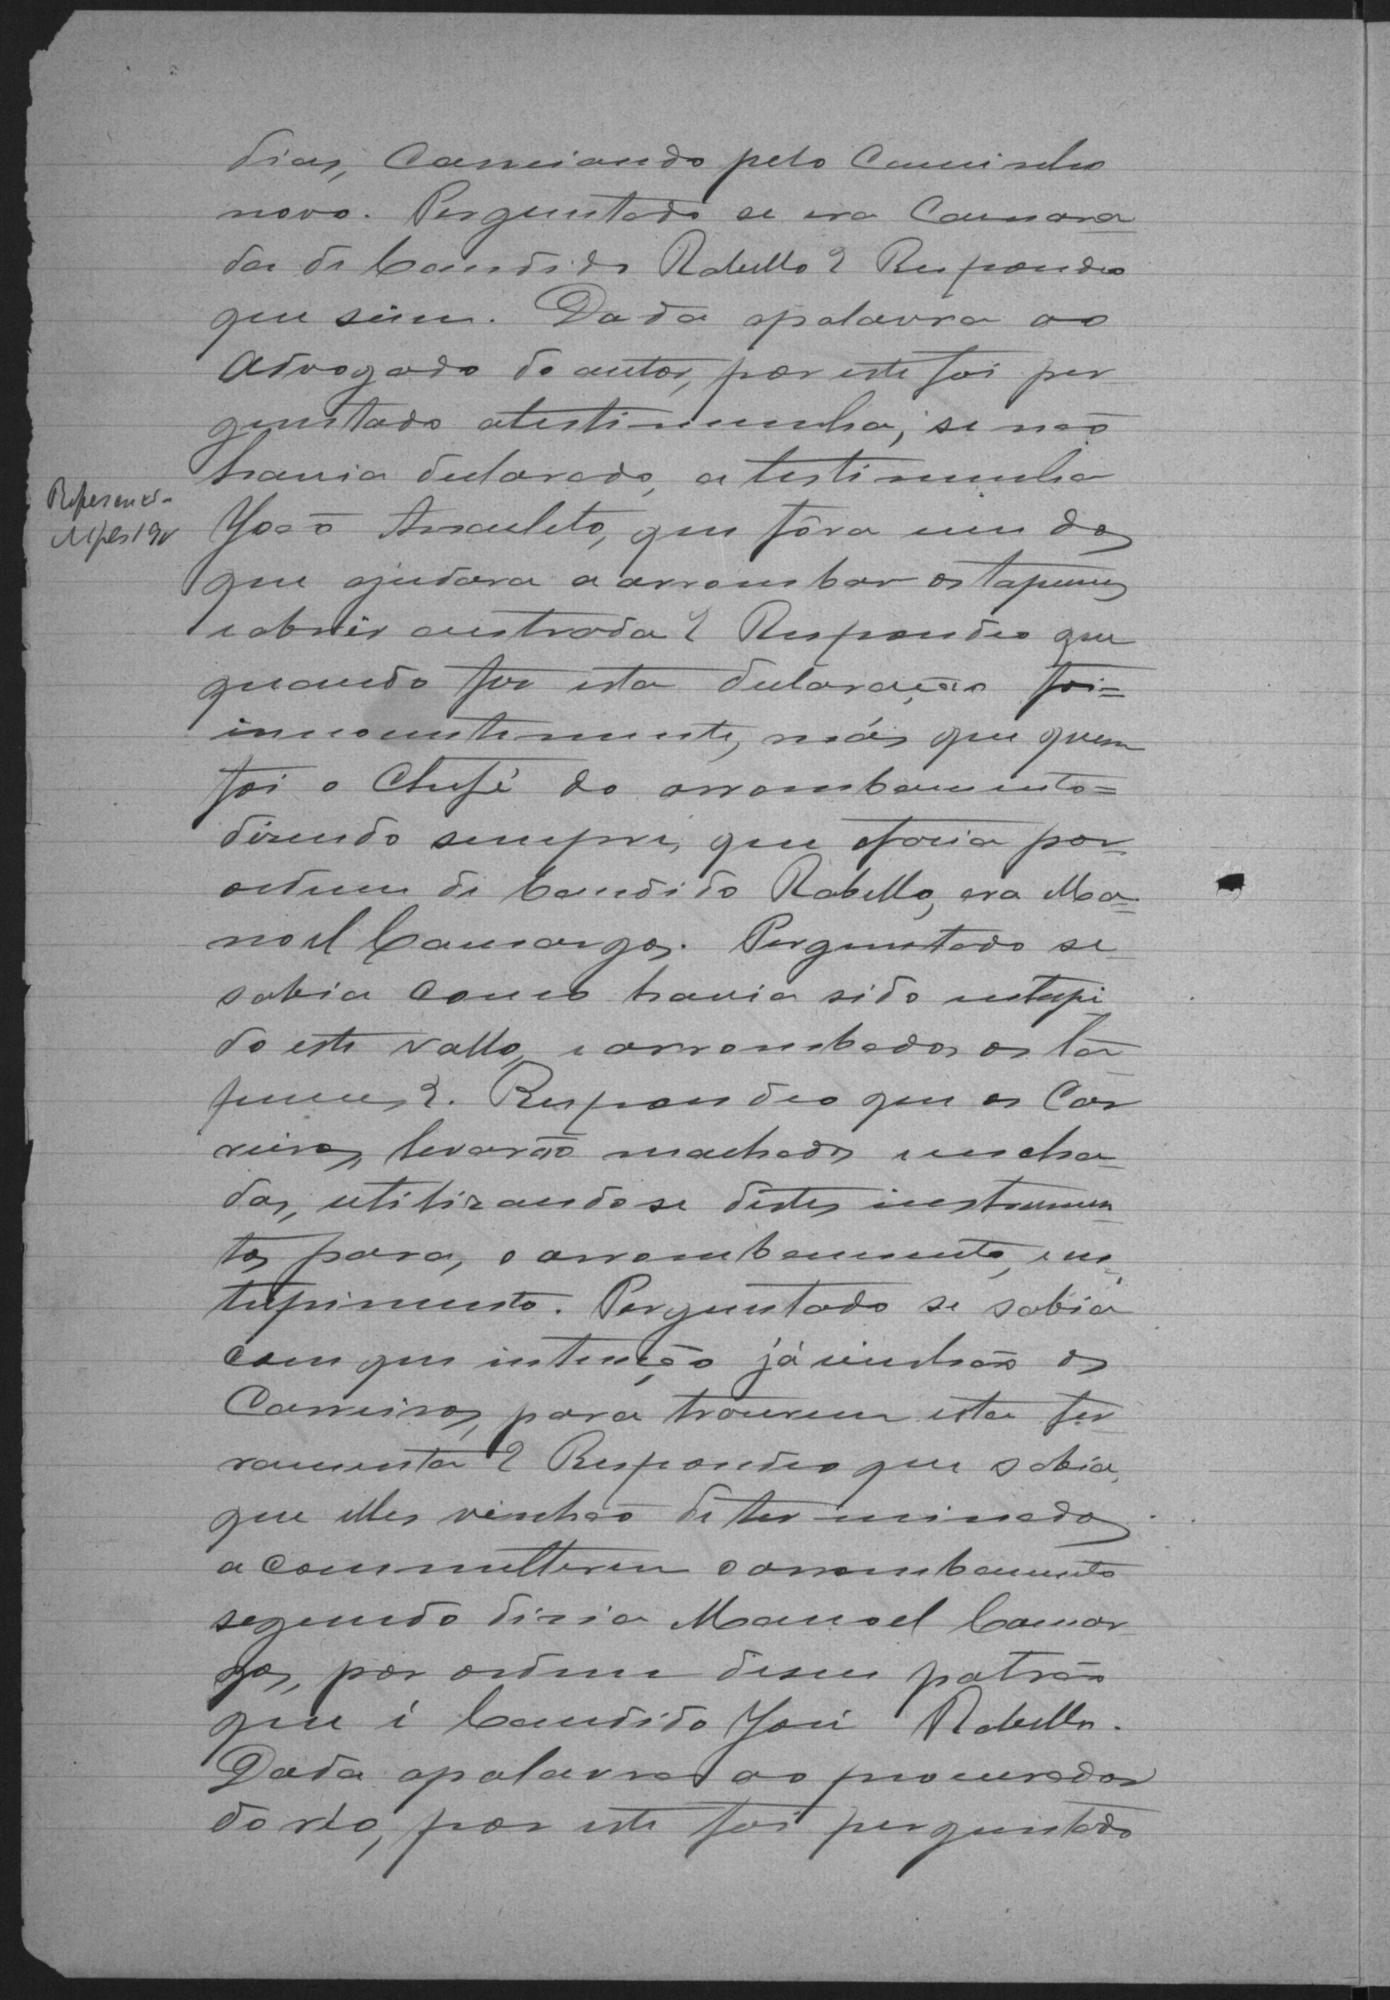 dias, carreiando pelo Caminho
novo. Perguntado se era Camara
da de Candido Rabello? Respondeo
que sim. Dada apalavra ao
Advogado do autor, por este foi per
guntado atestimunha, se não
havia declarado, a testimunha
João Anacleto, que fôra um dos
que ajudara a arrombar os tapumes
e abrir aestrada? Respondeo que
quando fez esta declaração foi=
innocentemente, más que quem
foi o Chefé do arrombamento=
dizendo sempre, que o fazia por
ordem de Candido Rabello, era Ma=
noel Camargos. Perguntado se
sabia como havia sido entupi
do este vallo, e arrombados os ta
pumes?. Respondeo que os Car
reiros, levarão machados e encha
das, utilizandose destes instrumen
tos para, o arrombamento, e en
tupimento. Perguntado se sabia
com que intenção já vinhão os
Carreiros, para trazerem esta fer
ramenta? Respondeo que sabia,
que elles vinhão determinados
a commetterem o arrombamento
segundo dizia Manoel Camar
gos, por ordem deseu patrão
que é Candido José Rabello.
Dada apalavra ao procurador
do réo, por este foi perguntado